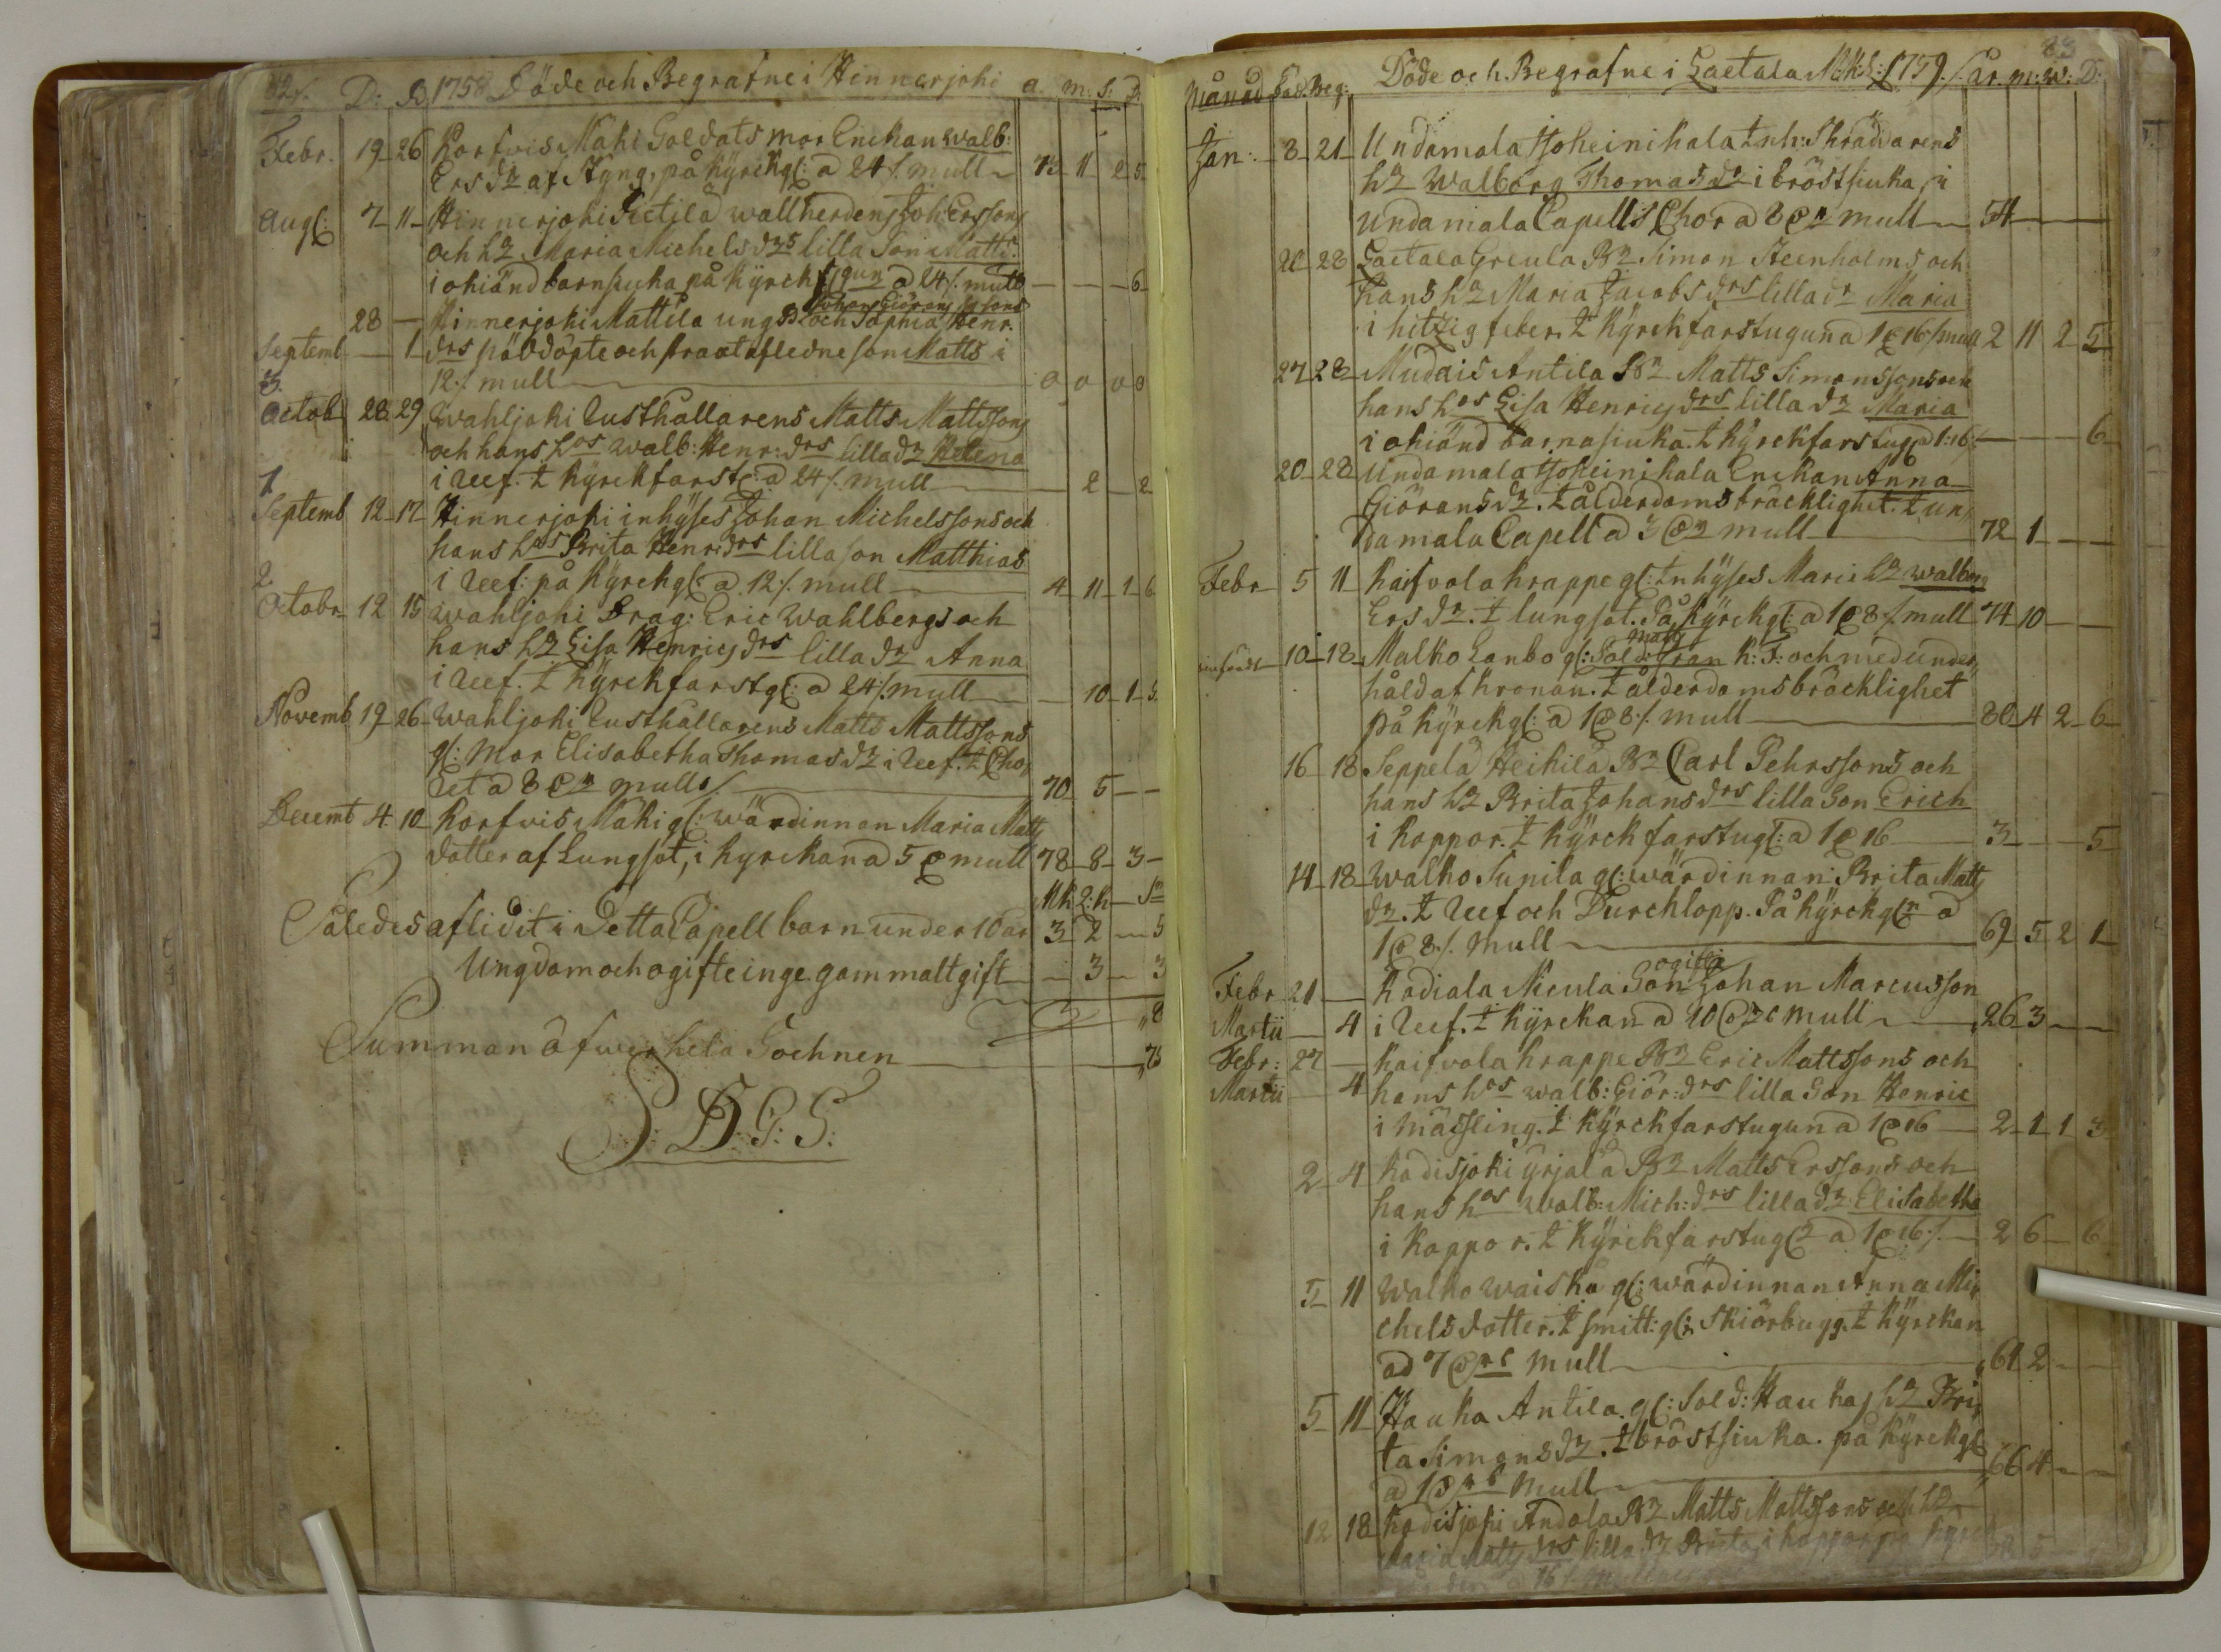 82. D: B. 1758 Döde och Begrafne i Hinnerjoki a. m: S: D:
Febr. 19 26 Korfvois Mäki Soldats mor Enckan Walb:
Ers dr af Styng, på kyrckg: a 24/. mull 73 11 2 5
Aug: 7 11 Hinnerjoki Sictilä wallherdens Joh: Erssons
och h: Maria Michels drs lilla Son Matts
i okiänd barnsiuka på kyrck a 24/. mull 6
Johan Giörans sons
28 Hinnerjoki Mattila ung B och Sophia Henr.
Septemb 1 drs nöddöpte och straxt afledne son Matts i
3. 12/. mull 0 0 0 0
Octob 28 29 Wahljoki Rusthållarens Matts Mattssons
och hans hos Walb: Henr: drs lilla dr Helena
1 i Reef. I kyrckfarst: a 24/. mull 2 2
Septemb 12 17 Hinnerjoki inhyses Johan Michelssons och
hans hos Brita Henr: drs lilla son Matthias
2 i Reef: på kyrckg: a 12/. mull 4 11 1 6
Octobr 12 15 Wahljoki Drag: Eric Wahlbergs och
hans hr Lisa Henrics drs lilla dr Anna
i Reef. I kyrckfarstg: a 24/. mull 10 1 5
Novemb 19 26 Wahljoki Rusthållarens Matts Mattssons
g: Mor Elisabetha Thomas dr i Reef. I Cho
ret a 8 mull 70 5
Decemb 4 10 Korfvois Mäki g: wärdinnan Maria Matts
dotter af Lungsot, i kyrckan a 5 mull 78 8 3
Mk 2: k Sa
Således aflidit i Detta Capell barn under 10 år 3 2 5
Ungdom och ogifte inge. gammalt gift 3 3
8
Summan öfwer hela Sochnen 78
S: D: G: S:
83
Månad Död. Beg: Döde och Begrafne i Laetala Mk: 1759. år. m: w: D:
Jan: 8 21 Undamala Hoheinikala Inh: Skräddarens
hr Walborg Thomas dr i bröstsiuka, i
Undamala Capells Chor a 8 mull 54
28 Laetala Greula Br Simon Steenholms och
hans hr Maria Jacobs drs lilla dr Maria
i hitzig feber. I kyrckfarstugun a 1 16/ mull 2 11 2 5
27 28 Mudais Antila Br Matts Simonssons och
hans hos Lisa Henrics drs lilla dr Maria
i okiänd barnasiuka. I kyrckfarstug a 1: 16/ 6
20 28 Undamala Hoheinikala Enckan Anna
Giörans dr. I ålderdoms bräcklighet. I un
damala Capell a 3 mull 72 1
Febr 5 11 Kaifvola Krappe g: Inhyses Maris hr Walborg
Ers dr. I lungsot. På kyrckg: a 1 8/. mull 74 10
Matts
10 18 Malko Lanbo g: Sold: Gran K: F: och med under
håld af kronan. I ålderdoms bräcklighet
på kyrckg: a 1 8/. mull 80 4 2 6
16 18 Seppelä Heikilä Br Carl Pehrssons och
hans hr Brita Johans drs lilla Son Erich
i koppor. I kyrckfarstug: a 1 16 3 5
14 18 Walko Sunila g: wärdinnan Brita Matts
dr. I Reef och Durchlopp. På kyrckgn a
1 8/. mull 69 5 2 1
ogifta
Febr 21 Kodiala Micula Son Johan Marcusson
Martii 4 i Reef. I kyrckan a 10 mull 26 3
Febr: 27 Kaifvola Krappe Br Eric Mattssons och
Martii 4 hans hos Walb: Giör: drs lilla Son Henric
i mässling. I kyrckfarstugun a 1 16 2 1 1 3
2 4 Kodisjoki Yrjälä Br Matts Erssons och
hans hos Walb: Mich: drs lilla dr Elisabetha
i koppor. I kyrckfarstug a 1 16/. 2 6 6
5 11 Walko Waiska g: wärdinnan Anna Mi
chels dotter. I smitt: g: Skiörbugg. I kyrckan
ad 7 mull 61 2
5 11 Hauka Antila g: Sold: Haukas hr Bri
ta Simons dr. I bröstsiuka. på kyrckg
a 1 mull 66 4
12 18 Kodisjoki Andola Br Matts Mattssons och hr
Maria Matts drs lilla dr Brita, i koppor på kyrck